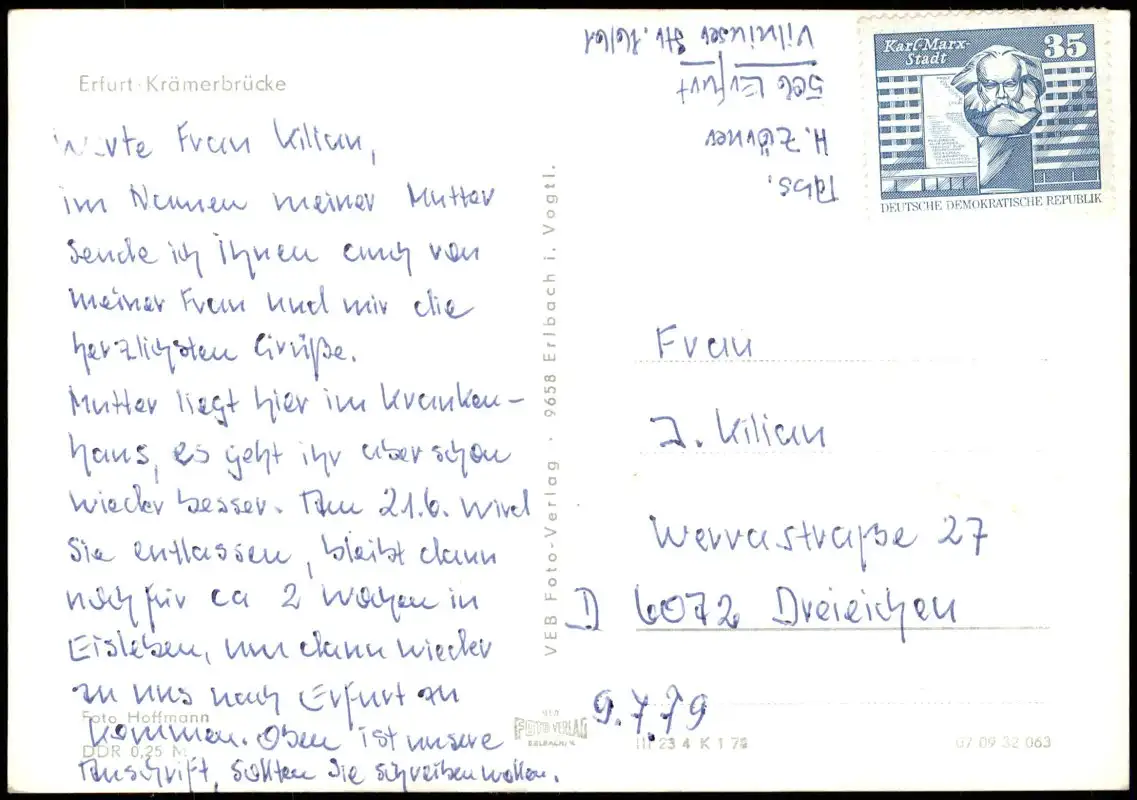 Erfurt · Krämerbrücke
werte Frau Kilian,
im Namen meiner Mutter
sende ich Ihnen auch von
meiner Frau und mir die
herzlichsten Grüße.
Mutter liegt hier im Kranken-
haus, es geht ihr aber schon
wieder besser. Am 21.6. wird
Sie entlassen, bleibt dann
noch für ca 2 Wochen in
Eisleben, um dann wieder
zu uns nach Erfurt zu
kommen. Oben ist unsere
Anschrift, sollten Sie schreiben wollen.
Foto Hoffmann
DDR 0,25 M
VEB Foto-Verlag · 9658 Erlbach i. Vogtl.
FOTO VERLAG
ERLBACH
Abs.
H. Zörner
506 Erfurt
Vilniuser Str.
Karl-Marx-
Stadt
35
DEUTSCHE DEMOKRATISCHE REPUBLIK
Frau
J. Kilian
Werrastraße 27
D 6072 Dreieichen
9.7.79
III 23 4 K 1 79
07 09 32 063